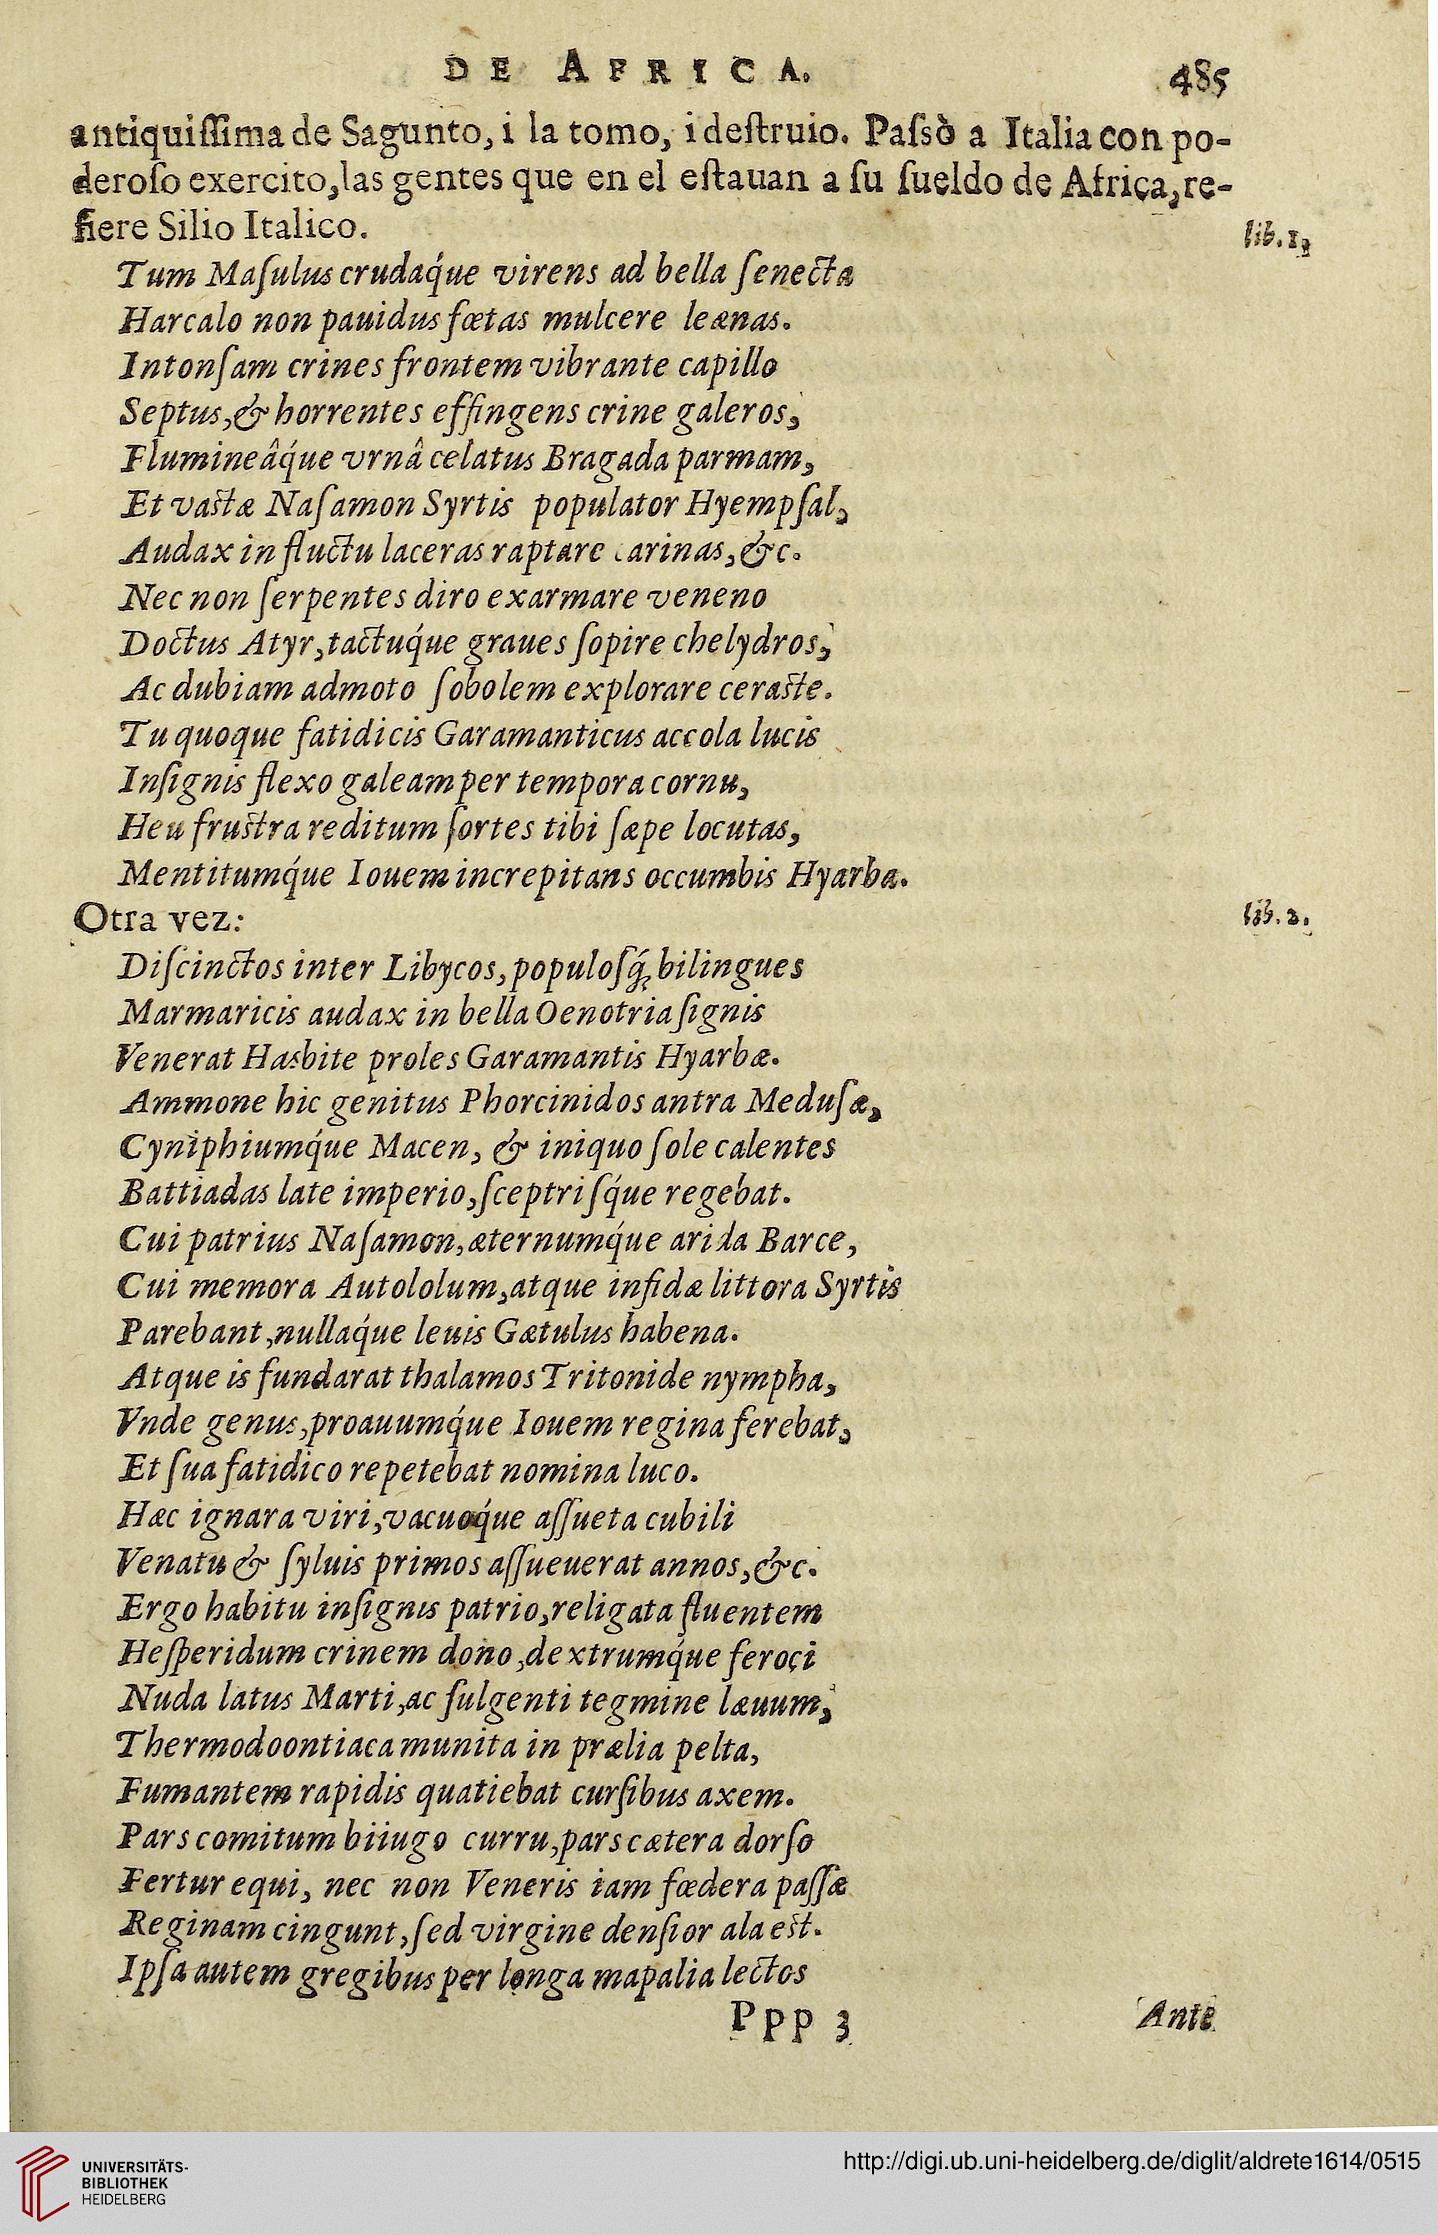 DE AFRICA. 485
antiquiſſima de Sagunto, i la tomo, i deſtruio. Paſsò a Italia con po-
deroſo exercito, las gentes que en el eſtauan a ſu ſueldo de Africa, re-
fiere Silio Italico. lib. 1,
Tum Maſulus crudaq́ue virens ad bella ſenecta
Harcalo non pauidus fœtas mulcere leænas.
Intonſam crines frontem vibrante capillo
Septus, & horrentes effingens crine galeros,
Flumineâq́ue vrnâ celatus Bragada parmam,
Et vaſtæ Naſamon Syrtis populator Hyempſal,
Audax in fluctu laceras raptare carinas, &c.
Nec non ſerpentes diro exarmare veneno
Doctus Atyr, tactuq́ue graues ſopire chelydros,
Ac dubiam admoto ſobolem explorare ceraſte.
Tu quoque fatidicis Garamanticus accola lucis
Inſignis flexo galeam per tempora cornu,
Heu fruſtra reditum ſortes tibi ſæpe locutas,
Mentitumq́ue Iouem increpitans occumbis Hyarba.
Otra vez: lib. 2.
Diſcinctos inter Libycos, populoſq́; bilingues
Marmaricis audax in bella Oenotria ſignis
Venerat Hasbite proles Garamantis Hyarbæ.
Ammone hic genitus Phorcinidos antra Meduſæ,
Cyniphiumq́ue Macen, & iniquo ſole calentes
Battiadas late imperio, ſceptriſq́ue regebat.
Cui patrius Naſamon, æternumq́ue arida Barce,
Cui memora Autololum, atque infidæ littora Syrtis
Parebant, nullaq́ue leuis Gætulus habena.
Atque is fundarat thalamos Tritonide nympha,
Vnde genus, proauumq́ue Iouem regina ferebat,
Et ſua fatidico repetebat nomina luco.
Hæc ignara viri, vacuoq́ue aſſueta cubili
Venatu & ſyluis primos aſſueuerat annos, &c.
Ergo habitu inſignis patrio, religata fluentem
Heſperidum crinem dono, dextrumq́ue feroci
Nuda latus Marti, ac fulgenti tegmine læuum,
Thermodoontiaca munita in prælia pelta,
Fumantem rapidis quatiebat curſibus axem.
Pars comitum biiugo curru, pars cætera dorſo
Fertur equi, nec non Veneris iam fœdera paſſæ
Reginam cingunt, ſed virgine denſior ala eſt.
Ipſa autem gregibus per longa mapalia lectos
Ppp 3 Ante
UNIVERSITÄTS-
BIBLIOTHEK
HEIDELBERG
http://digi.ub.uni-heidelberg.de/diglit/aldrete1614/0515